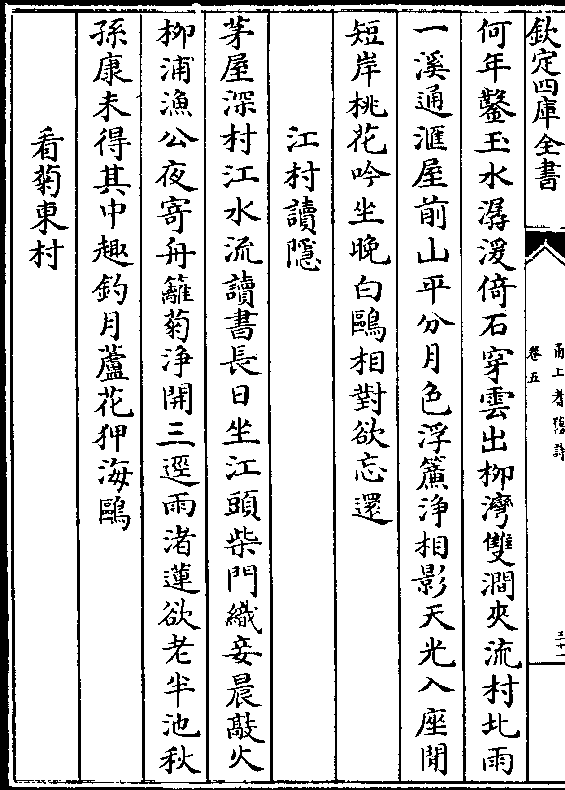 欽定四庫全書
甬上耆舊詩
卷五
三十一
何年鑿玉水潺湲倚石穿雲出柳灣雙澗夾流村北雨
一溪通滙屋前山平分月色浮簾浄相影天光入座閒
短岸桃花吟坐晚白鷗相對欲忘還
江村讀隱
茅屋深村江水流讀書長日坐江頭柴門織妾晨敲火
柳浦漁公夜寄舟籬菊浄開三逕雨渚蓮欲老半池秋
孫康未得其中趣釣月蘆花狎海鷗
看菊東村